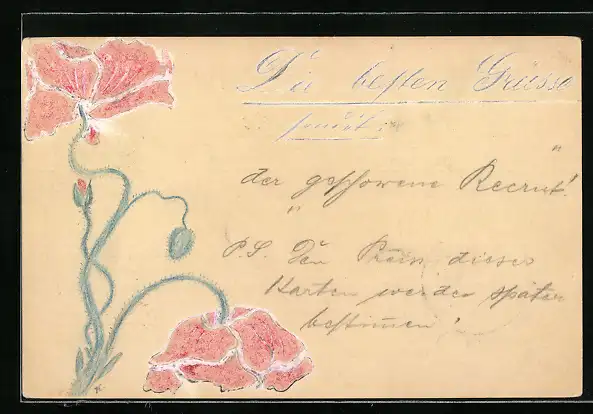 Die besten Grüsse
sendet:
der geschorene Recrut!
P.S. Den Preis dieses
Karten werde später
bestimmen!